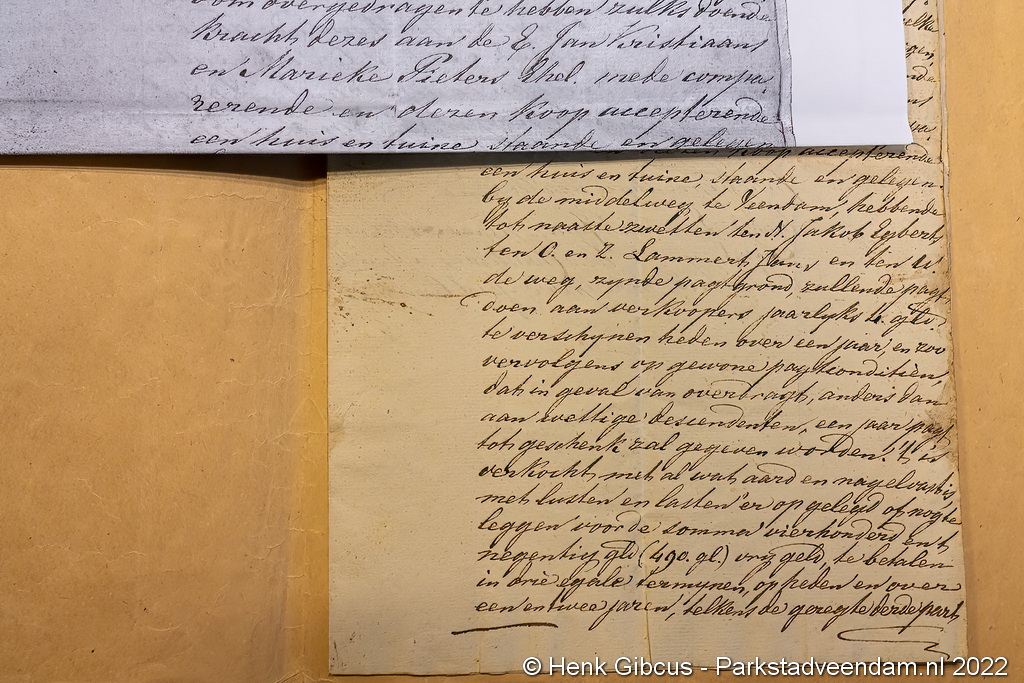 overgedragen te hebben zulks doende
kracht dezes aan de E. Jan Kristiaans
en Marieke Pieters Ehel. mede compa-
rerende en dezen koop accepterende
een huis en tuine staande en gelegen
koop accepterende
een huis en tuine, staande en gelegen
by de middelweg te Veendam, hebbende
tot naaste zwetten ten N. Jakob Egberts
ten O. en Z. Lammert Jans en ten W.
de weg, zynde pagtgrond, zullende pagt
doen aan verkoopers jaarlyks 4. gld
te verschynen heden over een jaar, en zoo
vervolgens op gewone pagtconditien,
dat in geval van overdragt, anders dan
aan wettige descendenten, een jaar pagt
tot geschenk zal gegeven worden. 't is
verkocht met al wat aard en nagelvast is
met lusten en lasten er op gelegd of nog te
leggen voor de somma vierhonderd en
negentig gld (490. gl.) vry geld, te betalen
in drie egale termynen, op heden en over
een en twee jaren, telkens de geregte derdepart
© Henk Gibcus - Parkstadveendam.nl 2022